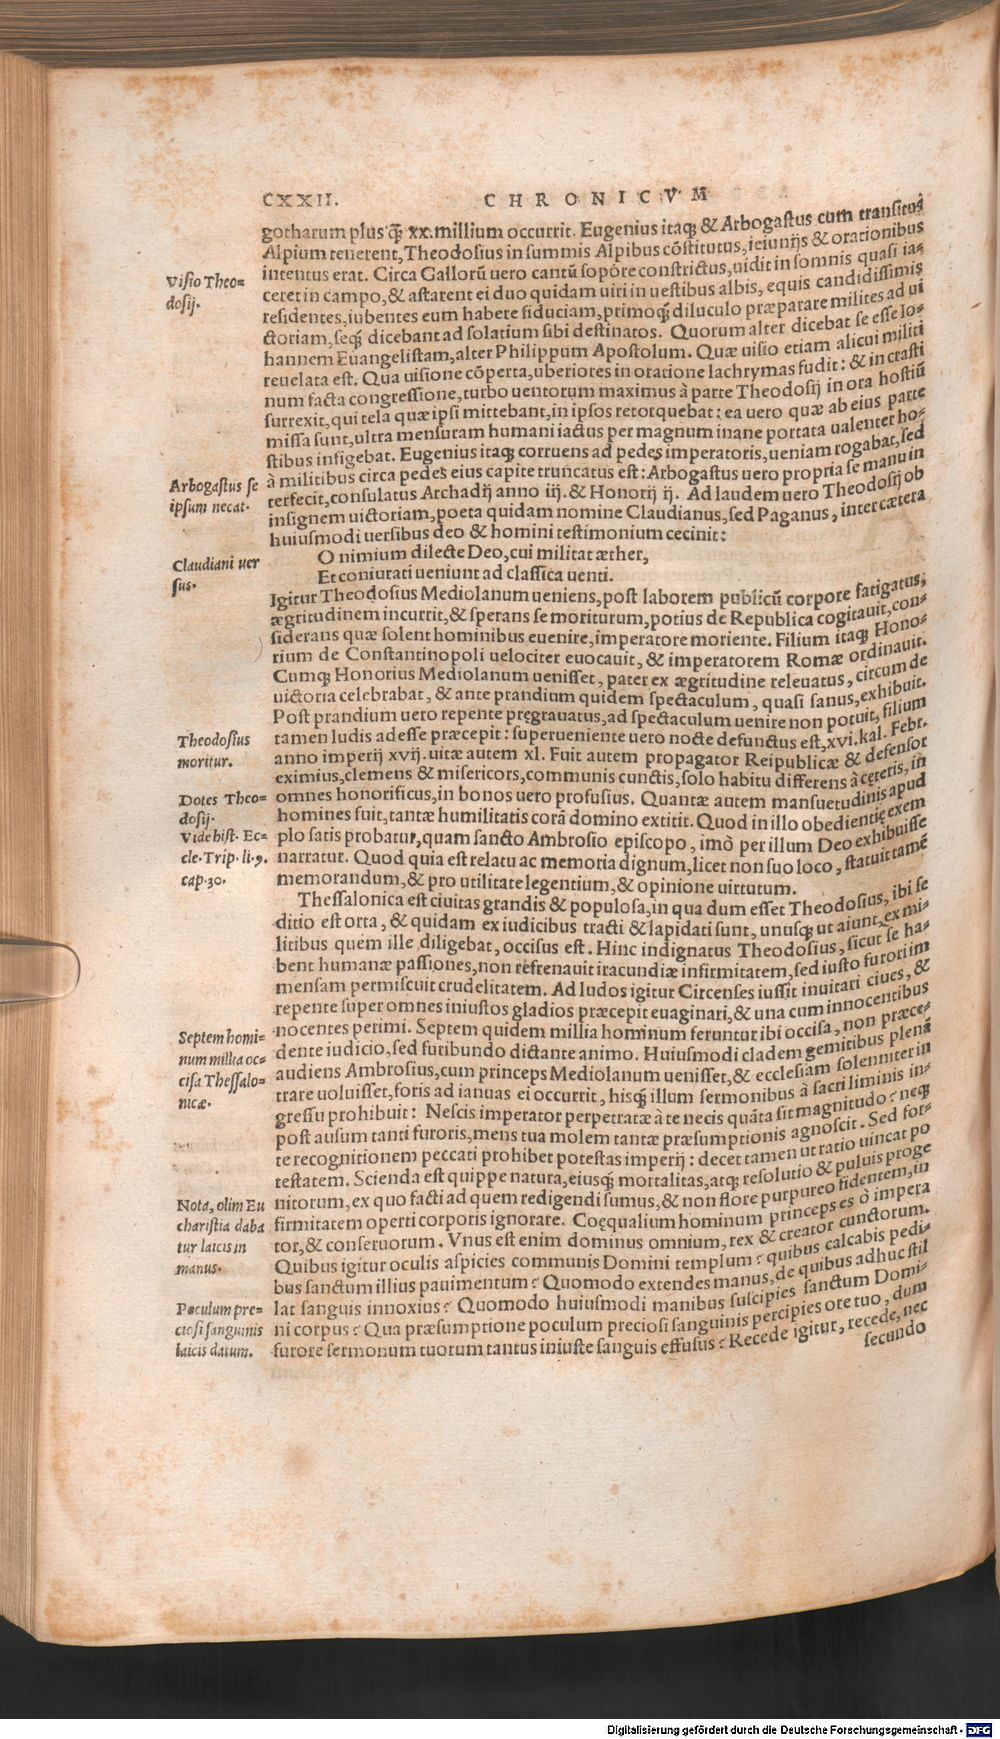 CXXII. CHRONICVM
gothorum plus q̃ꝫ xx. millium occurrit. Eugenius itaqꝫ & Arbogastus cum transitus
Alpium tenerent, Theodosius in summis Alpibus cõstitutus, ieiunijs & orationibus
intentus erat. Circa Gallorũ uero cantũ sopore constrictus, uidit in somnis quasi ia-
Visio Theo=
dosij.
ceret in campo, & astarent ei duo quidam uiri in uestibus albis, equis candidissimis
residentes, iubentes eum habere fiduciam, primoqꝫ diluculo præparare milites ad ui
ctoriam, seqꝫ dicebant ad solatium sibi destinatos. Quorum alter dicebat se esse Io-
hannem Euangelistam, alter Philippum Apostolum. Quæ uisio etiam alicui militi
reuelata est. Qua uisione cõperta, uberiores in oratione lachrymas fudit: & in crasti
num facta congressione, turbo uentorum maximus à parte Theodosij in ora hostiũ
surrexit, qui tela quæ ipsi mittebant, in ipsos retorquebat: ea uero quæ ab eius parte
missa sunt, ultra mensuram humani iactus per magnum inane portata ualenter ho-
stibus infigebat. Eugenius itaqꝫ corruens ad pedes imperatoris, ueniam rogabat, sed
Arbogastus se
ipsum necat.
à militibus circa pedes eius capite truncatus est: Arbogastus uero propria se manu in
terfecit, consulatus Archadij anno iij. & Honorij ij. Ad laudem uero Theodosij ob
insignem uictoriam, poeta quidam nomine Claudianus, sed Paganus, inter cætera
huiusmodi uersibus deo & homini testimonium cecinit:
Claudiani uer
sus.
O nimium dilecte Deo, cui militat æther,
Et coniurati ueniunt ad classica uenti.
Igitur Theodosius Mediolanum ueniens, post laborem publicũ corpore fatigatus,
ægritudinem incurrit, & sperans se moriturum, potius de Republica cogitauit, con-
siderans quæ solent hominibus euenire, imperatore moriente. Filium itaqꝫ Hono-
rium de Constantinopoli uelociter euocauit, & imperatorem Romæ ordinauit.
Cumqꝫ Honorius Mediolanum uenisset, pater ex ægritudine releuatus, circum de
uictoria celebrabat, & ante prandium quidem spectaculum, quasi sanus, exhibuit.
Post prandium uero repente pręgrauatus, ad spectaculum uenire non potuit, filium
Theodosius
moritur.
tamen ludis adesse præcepit: superueniente uero nocte defunctus est, xvi. kal. Febr.
anno imperij xvij. uitæ autem xl. Fuit autem propagator Reipublicæ & defensor
eximius, clemens & misericors, communis cunctis, solo habitu differens à cęteris, in
Dotes Theo=
dosij.
Vide hist. Ec=
cle. Trip. li. 9.
cap. 30.
omnes honorificus, in bonos uero profusius. Quantæ autem mansuetudinis apud
homines fuit, tantæ humilitatis corã domino extitit. Quod in illo obedientię exem
plo satis probatur, quam sancto Ambrosio episcopo, imò per illum Deo exhibuisse
narratur. Quod quia est relatu ac memoria dignum, licet non suo loco, statuit tamẽ
memorandum, & pro utilitate legentium, & opinione uirtutum.
Thessalonica est ciuitas grandis & populosa, in qua dum esset Theodosius, ibi se
ditio est orta, & quidam ex iudicibus tracti & lapidati sunt, unusqꝫ ut aiunt, ex mi-
litibus quem ille diligebat, occisus est. Hinc indignatus Theodosius, sicut se ha-
bent humanæ passiones, non refrenauit iracundiæ infirmitatem, sed iusto furori im
mensam permiscuit crudelitatem. Ad ludos igitur Circenses iussit inuitari ciues, &
repente super omnes iniustos gladios præcepit euaginari, & una cum innocentibus
Septem homi=
num millia oc=
cisa Thessalo=
nicæ.
nocentes perimi. Septem quidem millia hominum feruntur ibi occisa, non præce-
dente iudicio, sed furibundo dictante animo. Huiusmodi cladem gemitibus plenã
audiens Ambrosius, cum princeps Mediolanum uenisset, & ecclesiam solenniter in
trare uoluisset, foris ad ianuas ei occurrit, hisqꝫ illum sermonibus à sacri liminis in-
gressu prohibuit: Nescis imperator perpetratæ à te necis quãta sit magnitudo? neqꝫ
post ausum tanti furoris, mens tua molem tantæ præsumptionis agnoscit. Sed for-
te recognitionem peccati prohibet potestas imperij: decet tamen ut ratio uincat po
testatem. Scienda est quippe natura, eiusqꝫ mortalitas, atqꝫ resolutio & puluis proge
Nota, olim Eu
charistia daba
tur laicis in
manus.
nitorum, ex quo facti ad quem redigendi sumus, & non flore purpureo fidentem, in
firmitatem operti corporis ignorare. Coęqualium hominum princeps es ô impera
tor, & conseruorum. Vnus est enim dominus omnium, rex & creator cunctorum.
Quibus igitur oculis aspicies communis Domini templum? quibus calcabis pedi-
bus sanctum illius pauimentum? Quomodo extendes manus, de quibus adhuc stil
Poculum pre=
ciosi sanguinis
laicis datum.
lat sanguis innoxius? Quomodo huiusmodi manibus suscipies sanctum Domi-
ni corpus? Qua præsumptione poculum preciosi sanguinis percipies ore tuo, dum
furore sermonum tuorum tantus iniuste sanguis effusus? Recede igitur, recede, nec
secundo
Digitalisierung gefördert durch die Deutsche Forschungsgemeinschaft - DFG